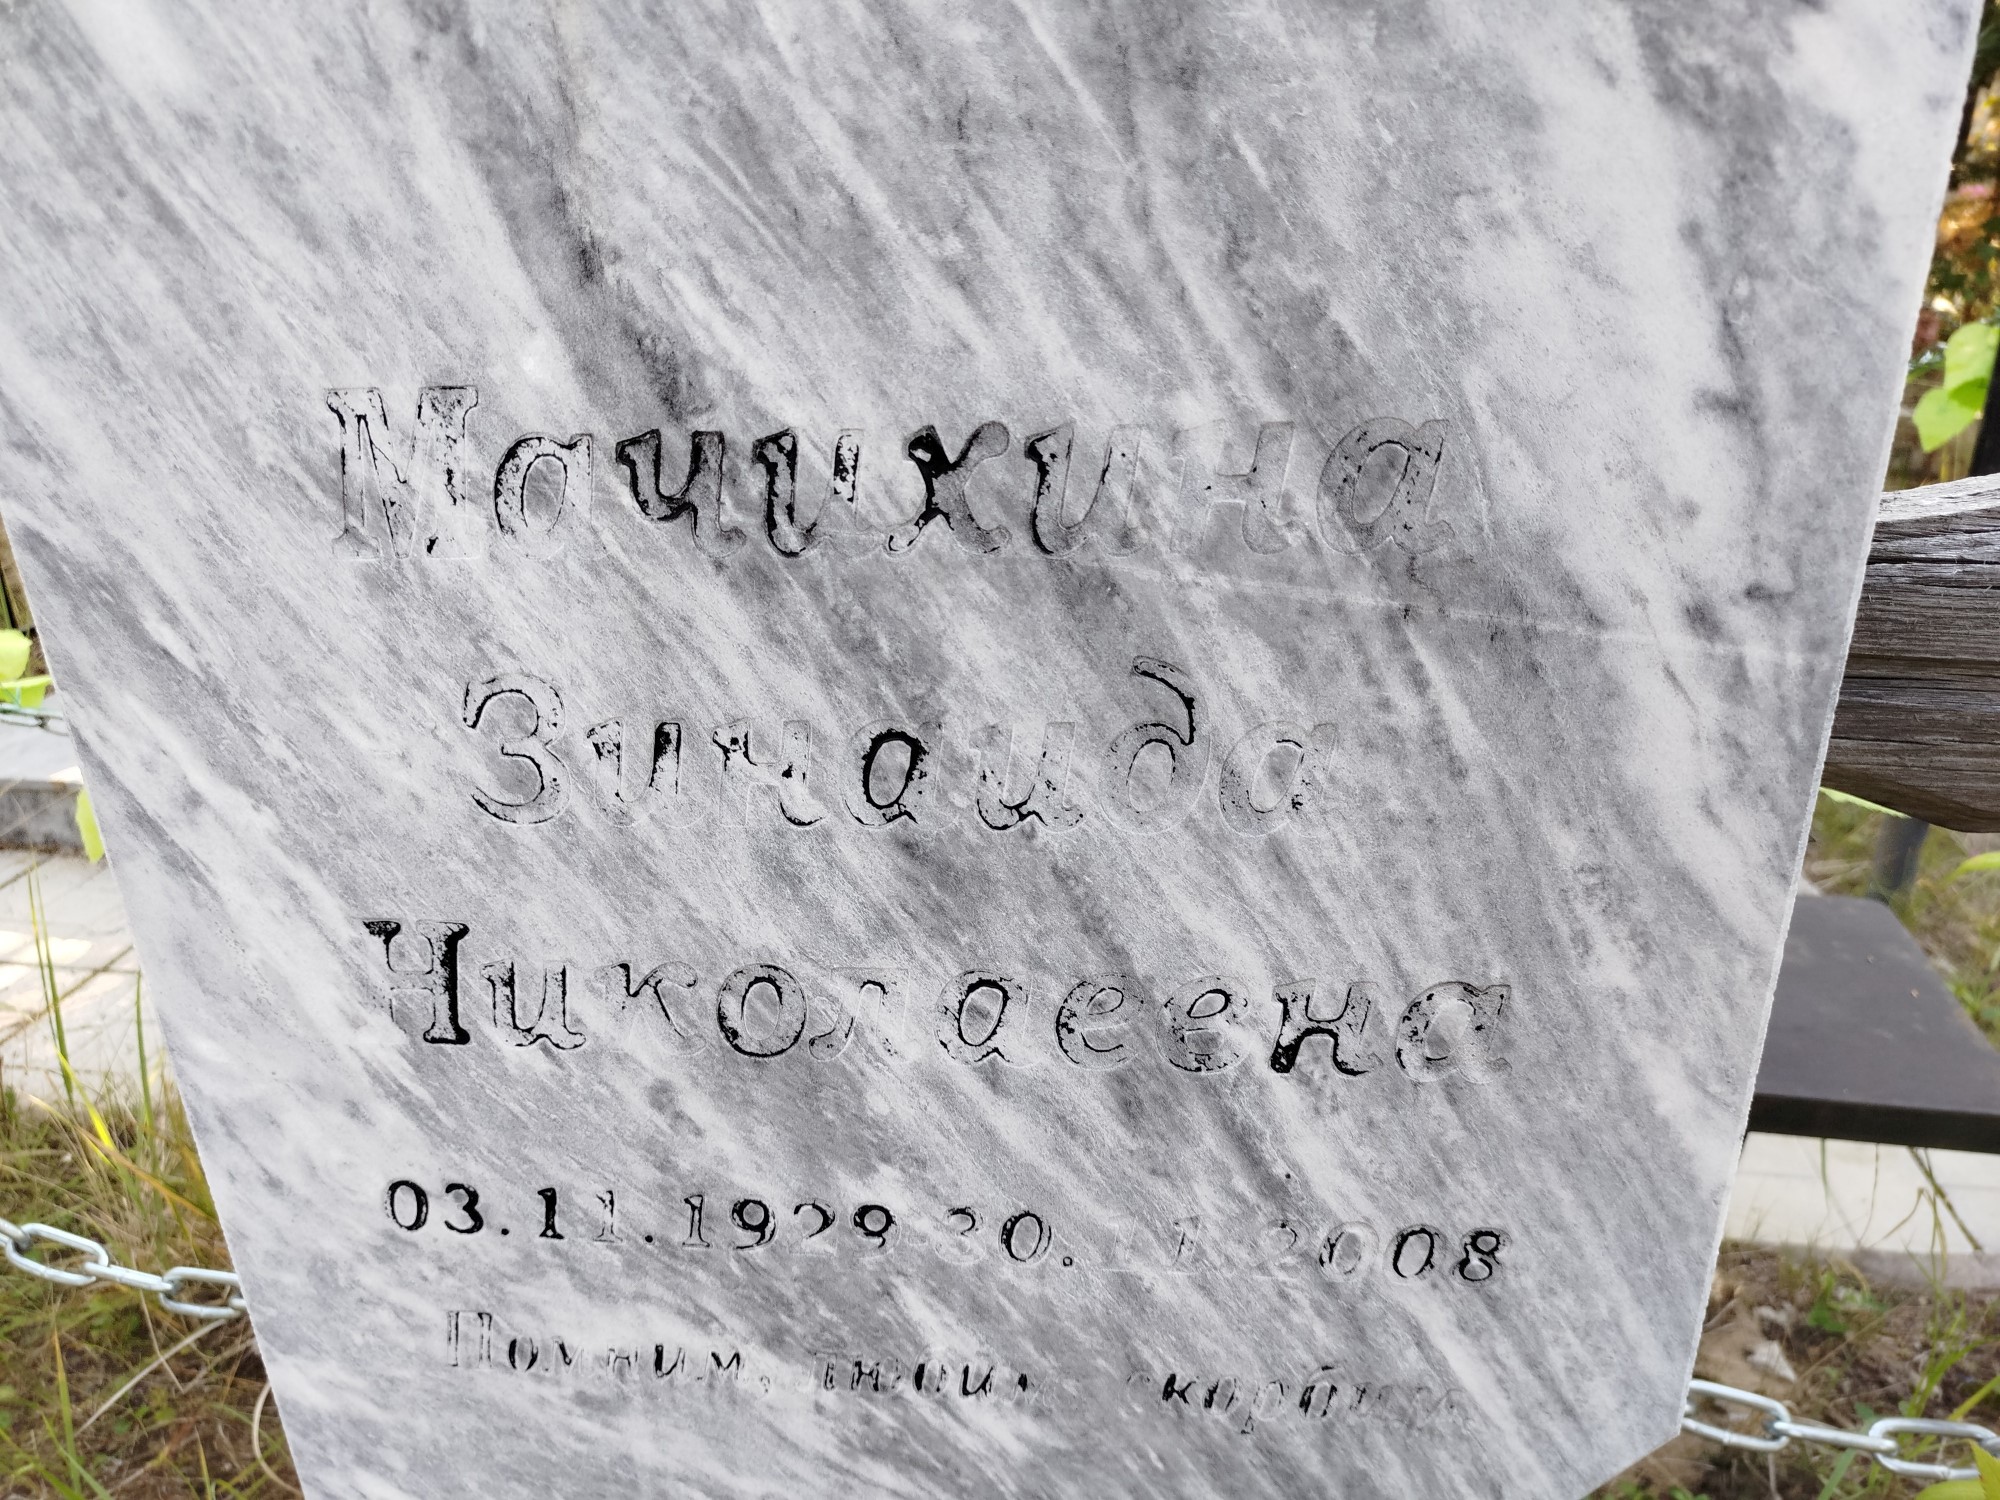 Мачихина
Зинаида
Николаевна
03.11.1929-30.11.2008
Помним, любим, скорбим